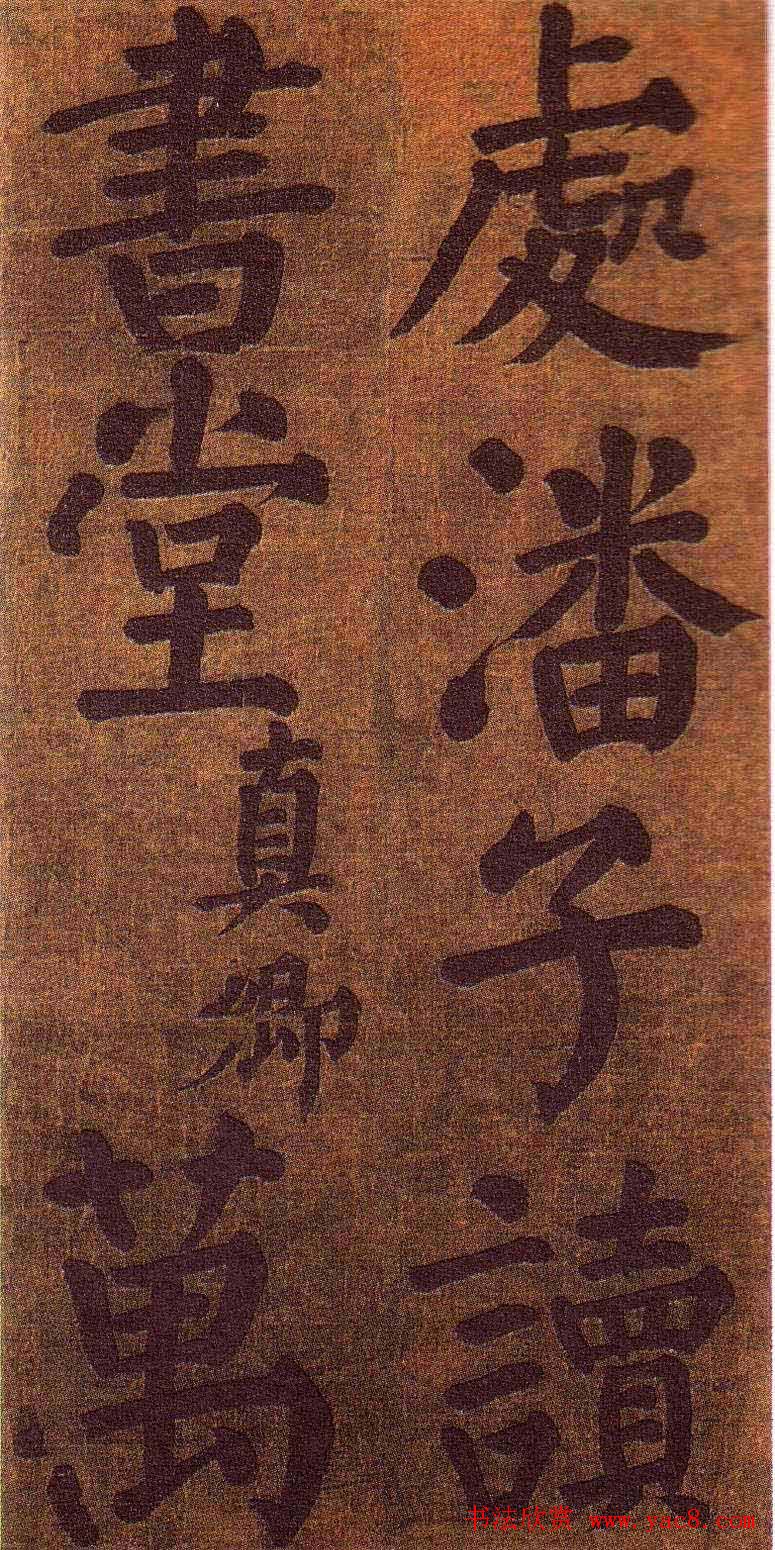 處潘子讀
書堂真卿萬
书法欣赏 www.yac8.com